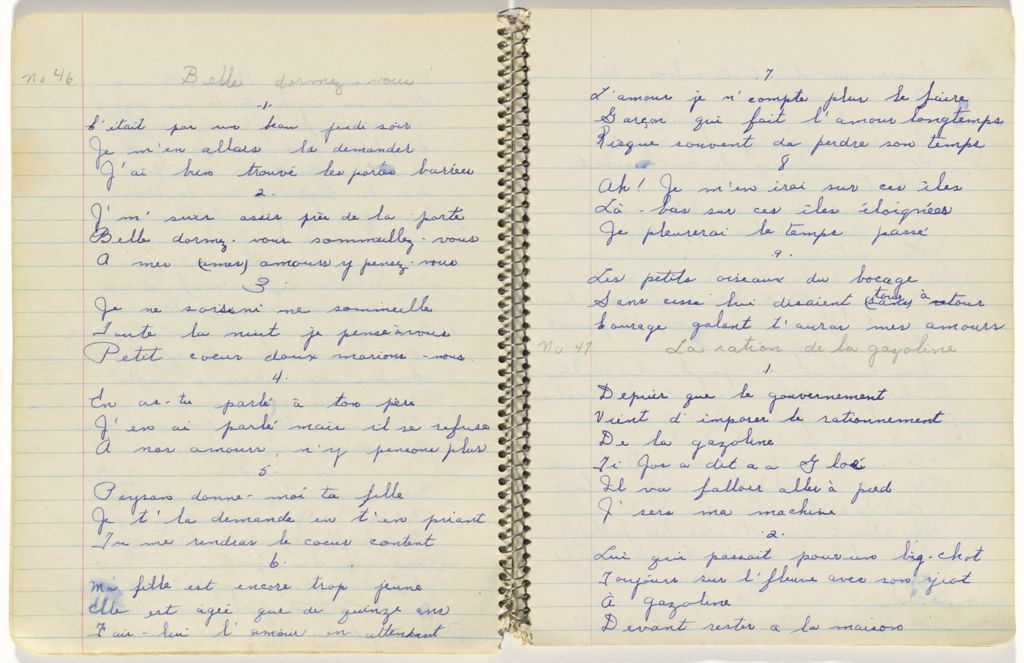 No 46 Belle dormez-vous
.1.
C'était par un beau jeudi soir
Je m'en allais la demander
J'ai bien trouvé les portes barrées
2.
J'm' suis assis près de la porte
Belle dormez-vous sommeillez-vous
A mes (mes) amours y pensez-vous
3.
Je ne sors ni ne sommeille
Toute la nuit je pense à vous
Petit coeur doux marions-nous.
4.
En as-tu parlé à ton père
J'en ai parlé mais il se refuse
A nos amours, n'y pensons plus
5.
Paysan donne-moi ta fille
Je t'la demande en t'en priant
Tu me rendras le coeur content
6.
Ma fille est encore trop jeune
Elle est agée que de quinze ans
Fais-lui l'amour en attendant
.7.
L'amour je n'compte plus le faire
Garçon qui fait l'amour longtemps
Risque souvent de perdre son temps
8
Ah! Je m'en irai sur ces îles
Là-bas sur ces îles éloignées
Je pleurerai le temps passé
.9.
Les petits oiseaux du bocage
Sans cesse lui disaient (sans) tour à tour
Courage galant t'auras mes amours
No 47 La ration de la gazoline
1
Depuis que le gouvernement
Vient d'imposer le rationnement
De la gazoline
Ti Jos a dit a a
Il va falloir aller à pied
J' sers ma machine
.2.
Lui qui passait pour un big-chot
Toujours sur l'fleuve avec son yiot
À gazoline
Devant rester a la maison